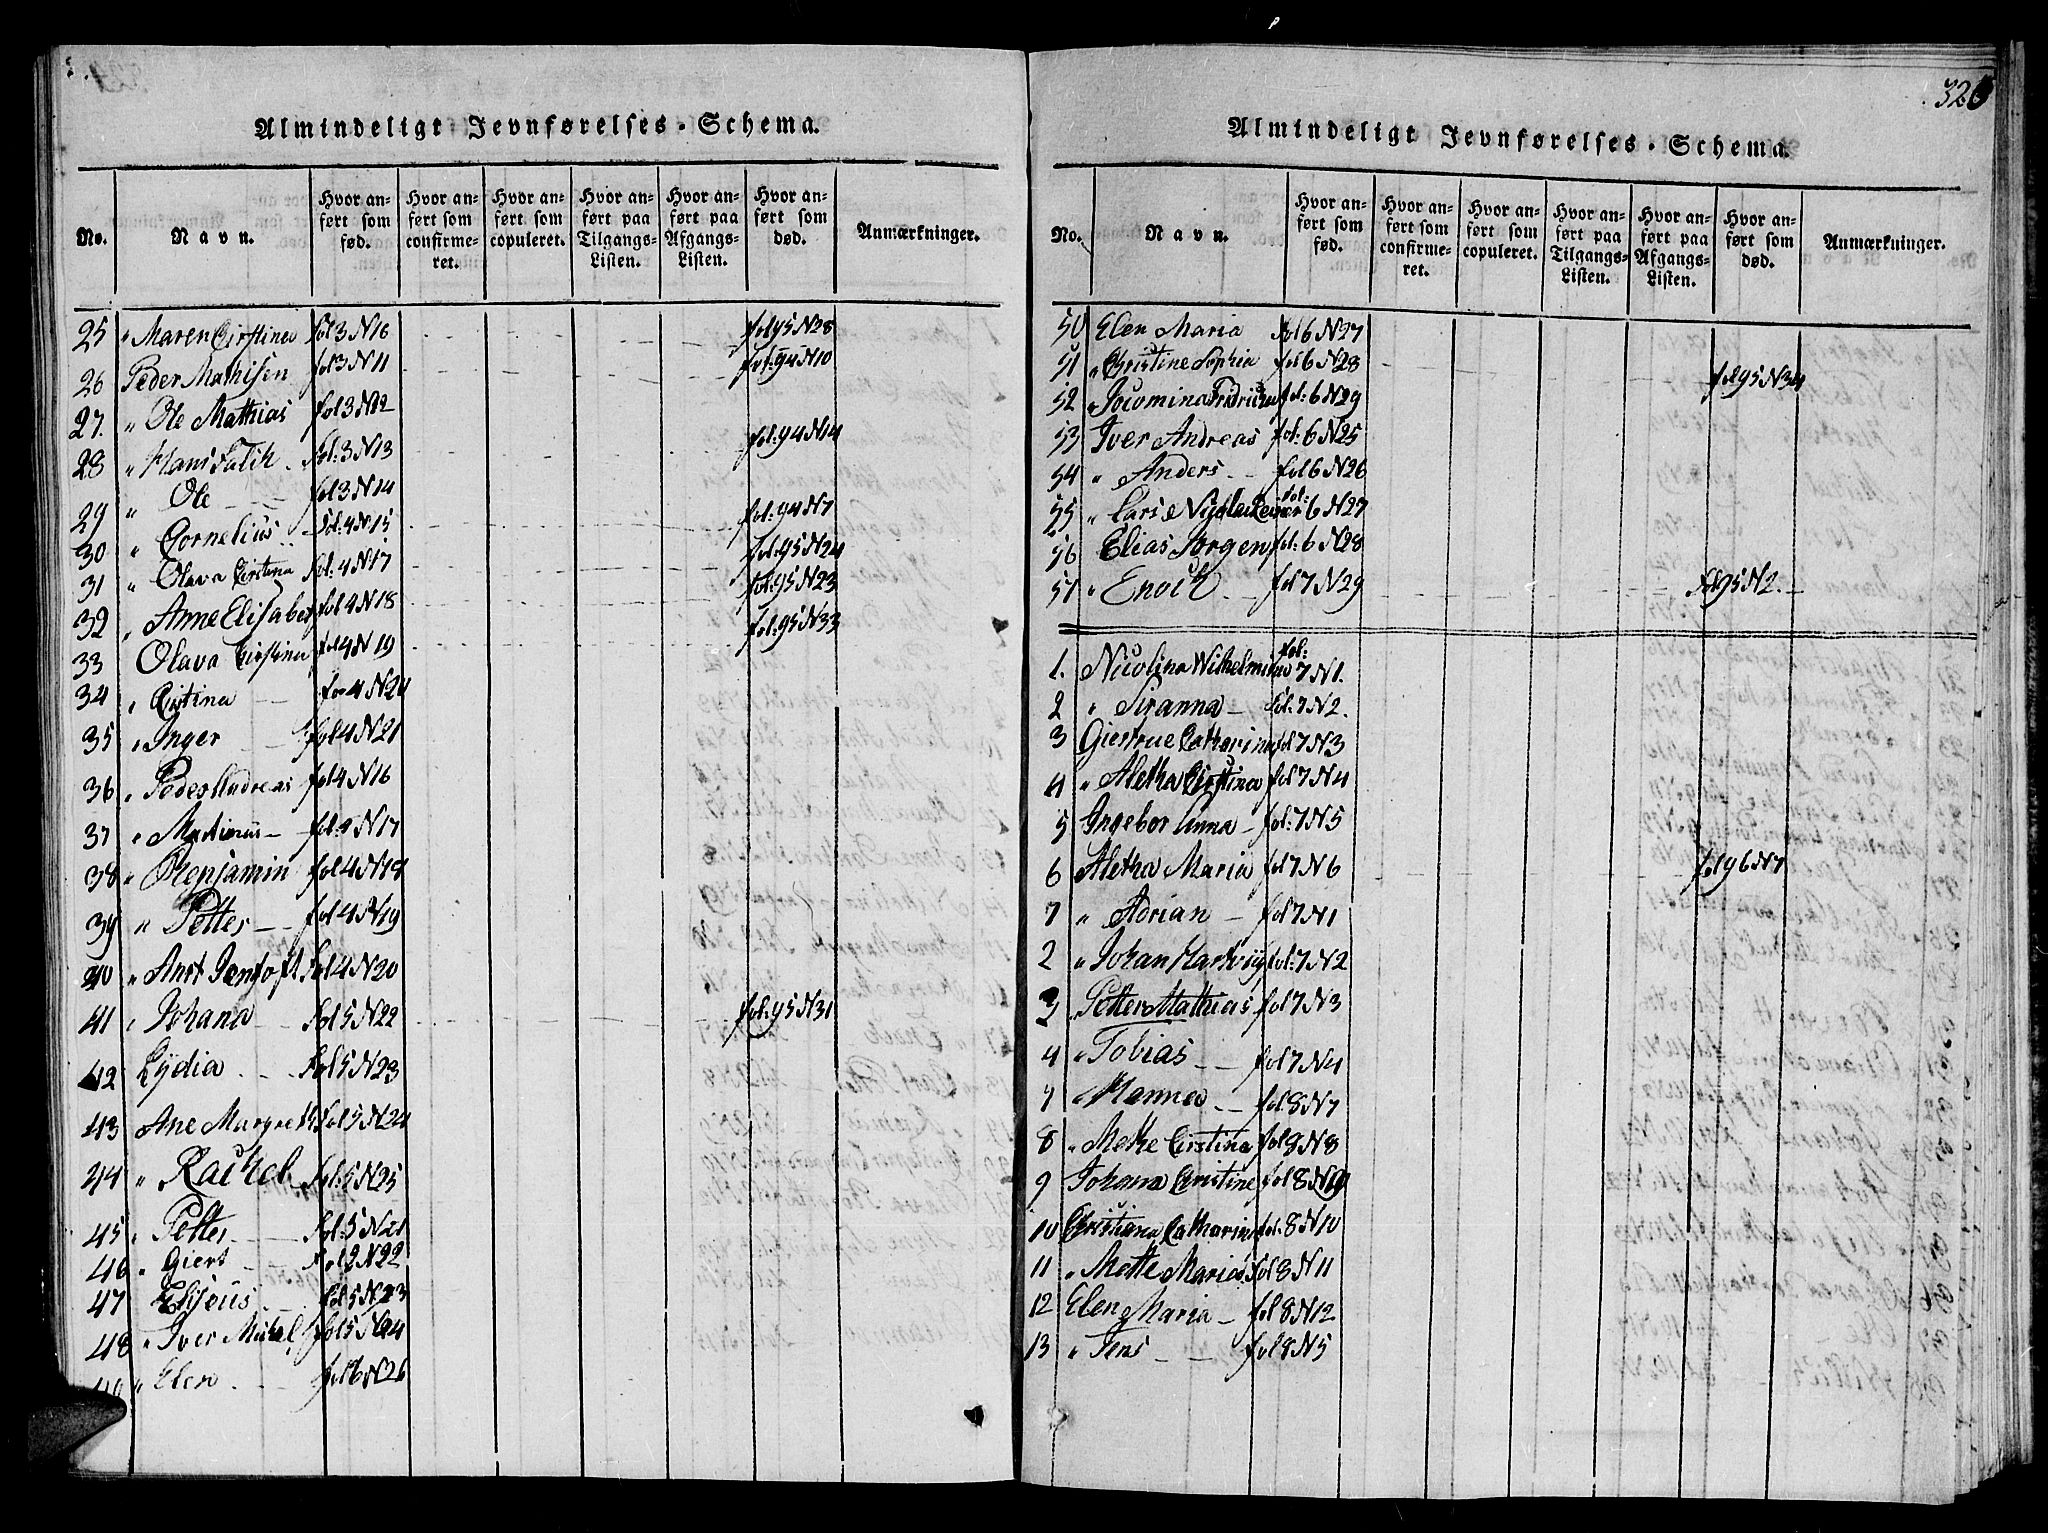 Almindeligt Jevnførelses-Schema.
No.
Navn.
Hvor anført som fød.
Hvor anført som confirmeret.
Hvor anført som copuleret.
Hvor anført paa Tilgangs-Listen.
Hvor anført paa Afgangs-Listen.
Hvor anført som død.
Anmærkninger.
25 Maren Cirstina fol 3 N 16 fol 95 N 28
26 Peder Mathisen fol 3 N 11 fol: 94 N 10
27. Ole Mathias fol 3 N 12
28 Hans Falik fol: 3 N 13 fol: 94 N 14
29 Ole fol 3 N 14
30 Cornelius fol: 4 N 15 fol: 94 N 7
31 Olava Cirstina fol: 4 N 17 fol: 95 N 24
32 Anne Elisabet fol 4 N 18 fol: 95 N 23
33 Olava Cirstina fol 4 N 19 fol: 95 N 33
34 Cistina fol 4 N 20
35 Inger fol 4 N 21
36 Peder Andreas fol 4 N 16
37 Martinus fol: 4 N 17
38 Benjamin fol 4 N 18
39 Petter fol 4 N 19
40 Anrt fol 4 N 20
41 Johana fol 5 N 22 fol: 95 N 31
42 Lydia fol 5 N 23
43 Ane Margreth fol 5 N 24
44 Rachel fol: 5 N 25
45 Petter fol: 5 N 21
46 Giert fol 2 N 22
47 Eliseus fol 5 N 23
48 Iver Mickel fol 5 N 24
49 Elen fol 6 N 26
326
Almindeligt Jevnførelses-Schema.
No.
Navn.
Hvor anført som fød.
Hvor anført som confirmeret.
Hvor anført som copuleret.
Hvor anført paa Tilgangs-Listen.
Hvor anført paa Afgangs-Listen.
Hvor anført som død.
Anmærkninger.
50 Elen Maria fol 6 N 27
51 Christine Sophia fol 6 N 28 fol 95 N 34
52 Jocomina Fridricha fol: 6 N 29
53 Iver Andreas fol: 6 N 25
54 Anders fol 6 N 26
55 Lars fol: 6 N 27
56 Elias Jørgen fol: 6 N 28
57 Enoch fol 7 N 29 fol 95 N 2.
1. Nicolina Wilhelmina fol: 7 N 1.
2 Siranna fol: 7 N 2.
3 Giertrue Catharina fol 7 N 3
4 Aletha Cirstina fol 7 N 4
5 Ingebor Anna fol: 7 N 5
6 Aletha Maria fol 7 N 6 fol 96 N 7
7 Adrian fol 7 N 1
2 Johan Hartvig fol: 7 N 2
3 Petter Mathias fol 7 N 3
4 Tobias fol 7 N 4
7 Hanna fol: 8 N 7
8 Mette Cirstina fol 8 N 8
9 Johana Christine fol 8 N 9
10 Christiana Catharina fol: 8 N 10
11 Mette Maria fol 8 N 11
12 Elen Maria fol 8 N 12
13 Jens fol 8 N 5